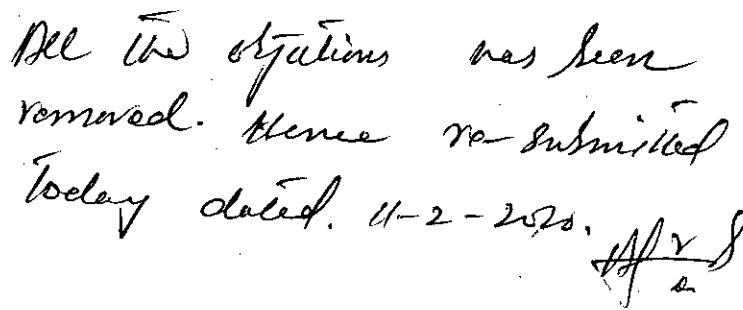 All the objections has been
removed. Hence re-submitted
Today dated. 11-2-2020.